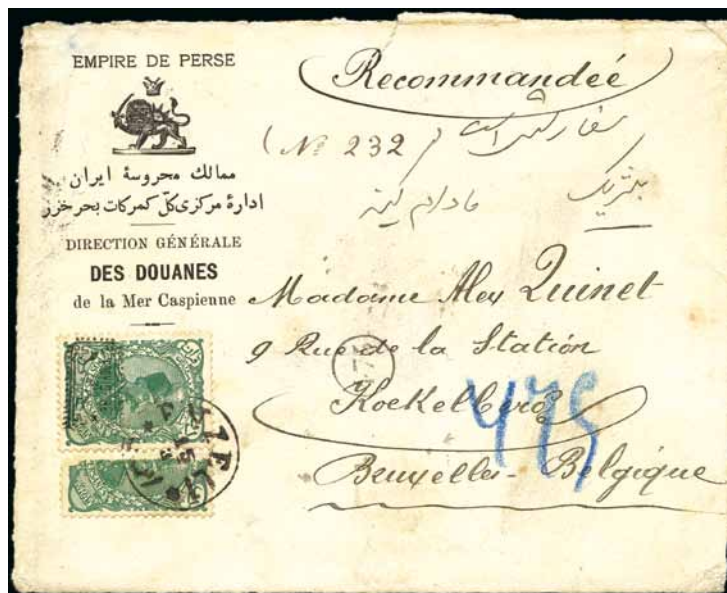 EMPIRE DE PERSE
ممالك محروسهٔ ایران
ادارهٔ مرکزی کلّ کمرکات بحر خزر
DIRECTION GÉNÉRALE
DES DOUANES
de la Mer Caspienne
Recommandéé
سفارشی است
(No 232)
بلژیک
مادام کینه
Madame Alex Quinet
9 Rue de la Station
Koekelberg
Bruxelles - Belgique
475